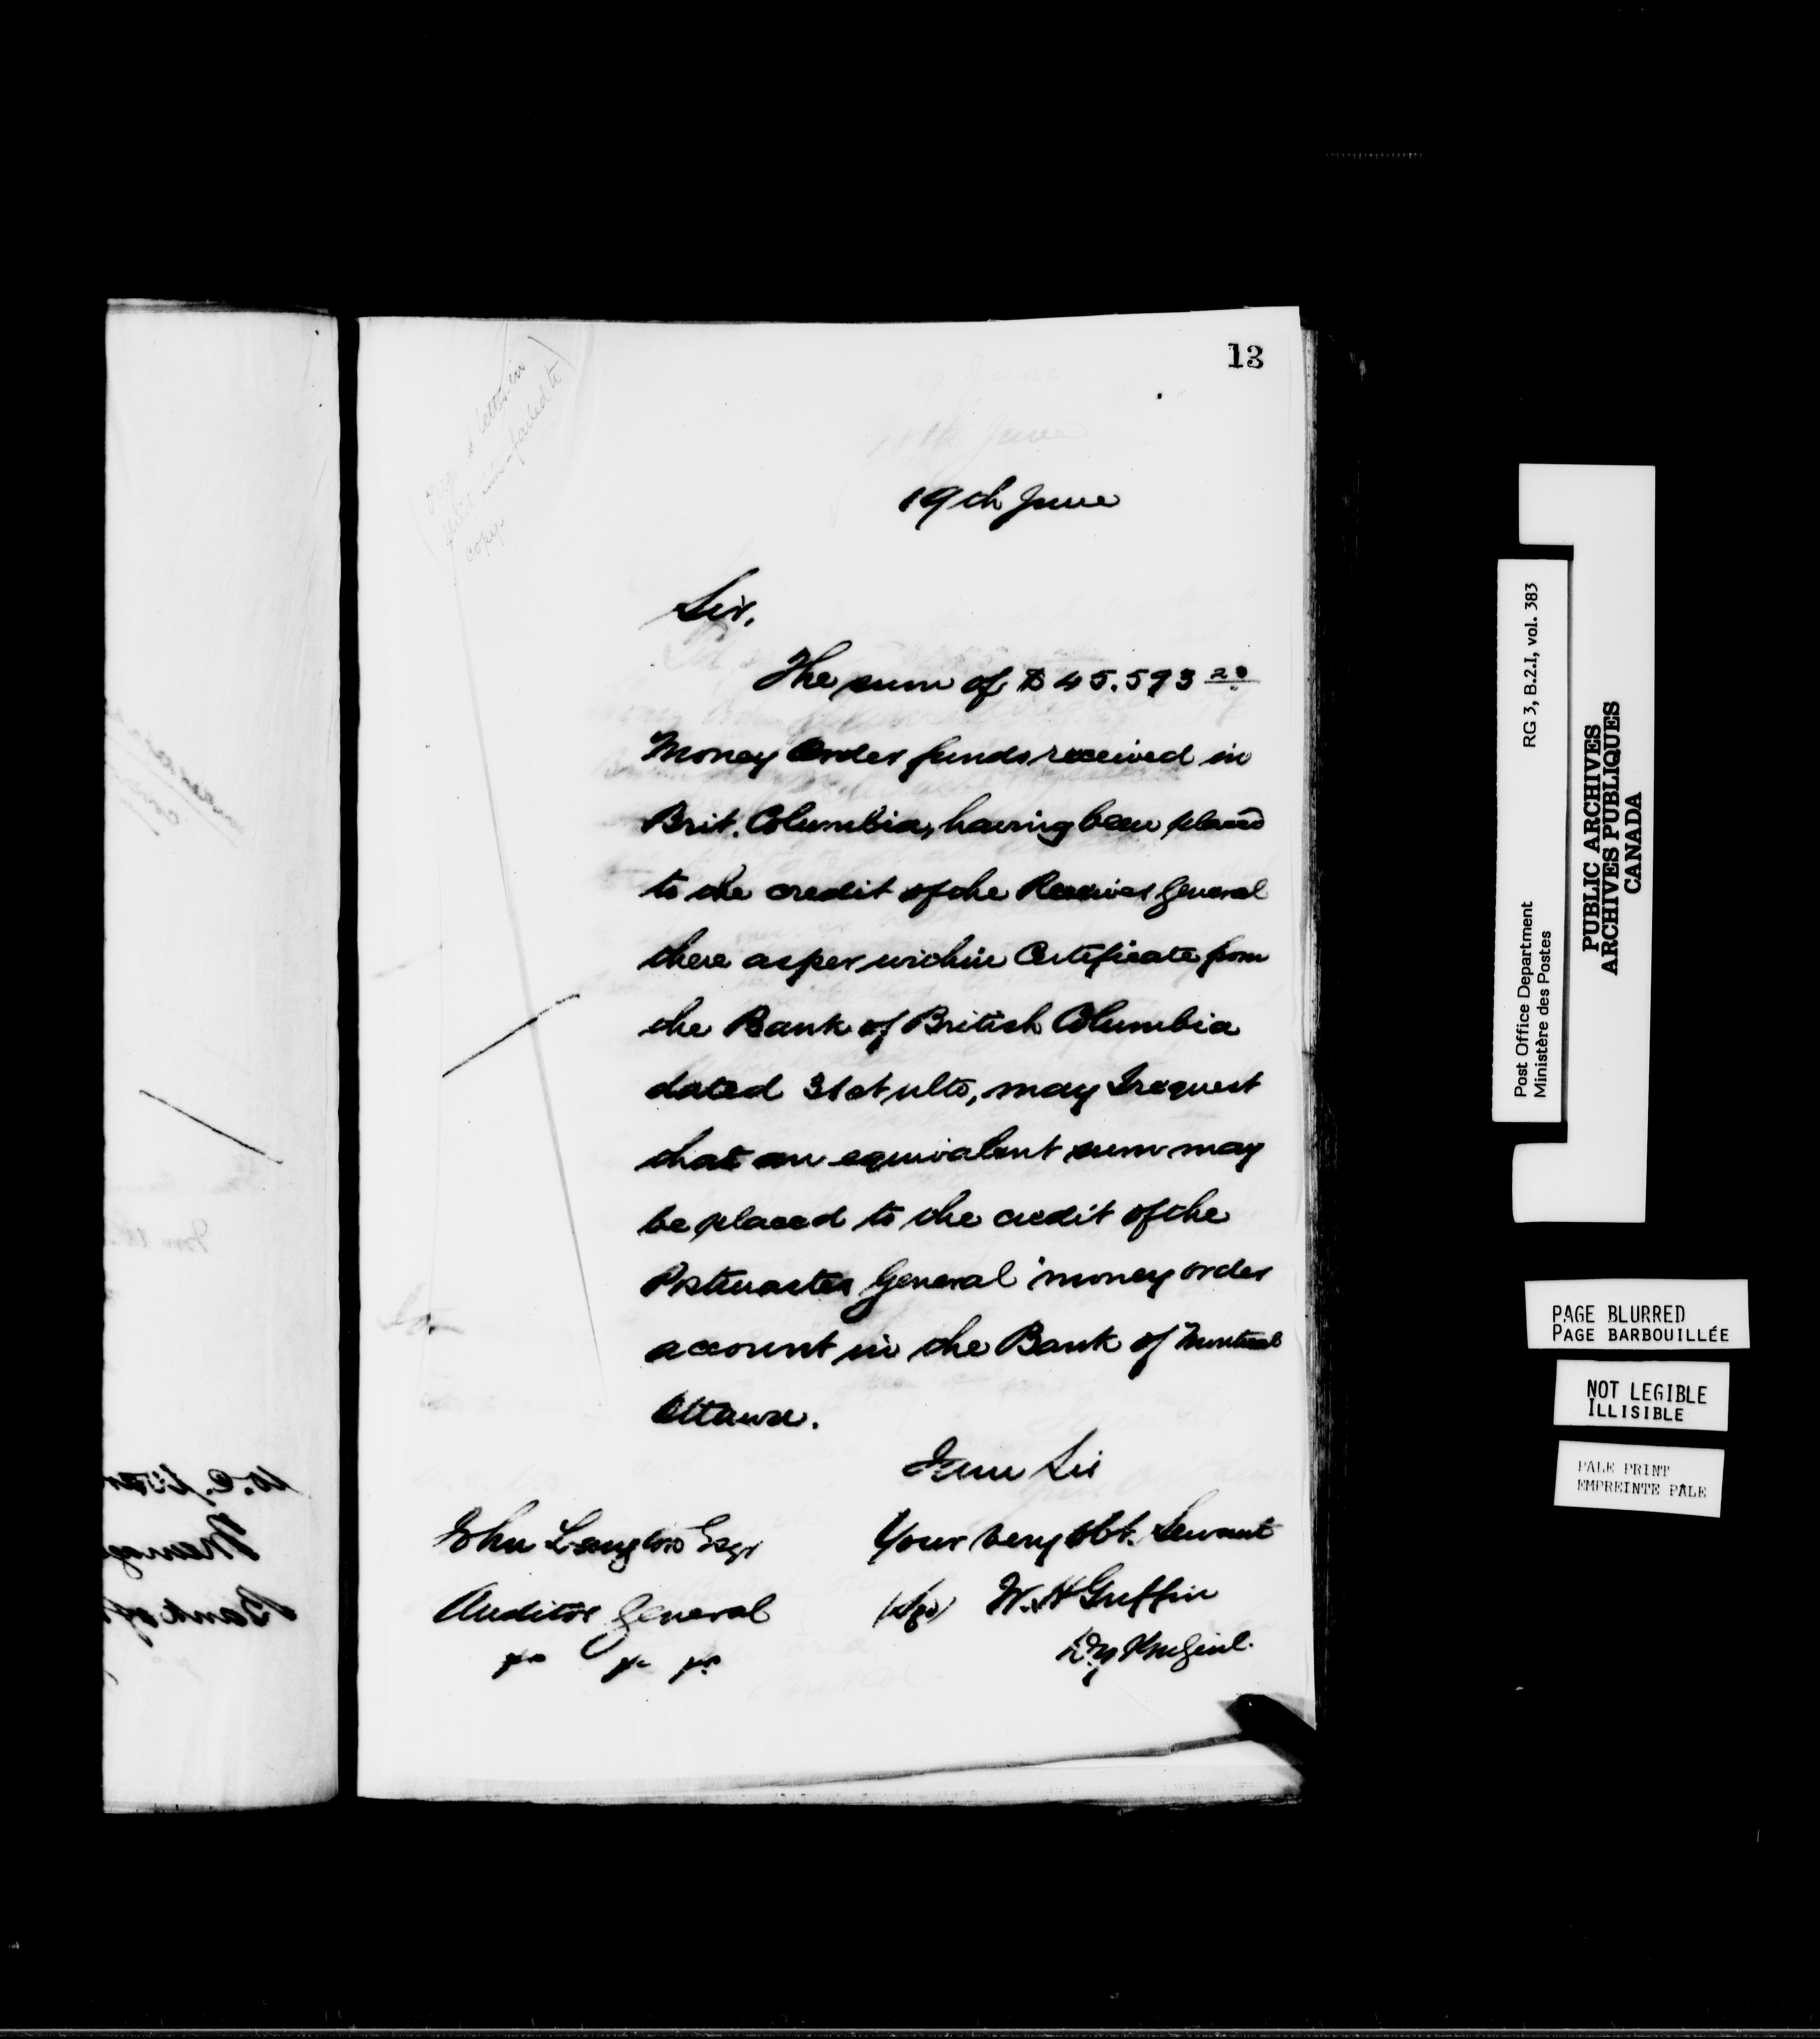 13
19th June
Sir,
The sum of $45.593 20
Money Order funds received in
Brit. Columbia, having been placed
to the credit of the Receiver General
there as per within Certificate from
the Bank of British Columbia
dated 31st ulto, may I request
that an equivalent sum may
be placed to the credit of the
Postmaster General money order
account in the Bank of Montreal
Ottawa.
I am Sir
Your very obt. Servant
(sgd) W. H Griffin
Dy PM Genl.
John Langton Esqr
Auditor General
letter in
failed to
copy.
Bank of
RG 3, B.2.1, vol. 383
Post Office Department
Ministère des Postes
PUBLIC ARCHIVES
ARCHIVES PUBLIQUES
CANADA
PAGE BLURRED
PAGE BARBOUILLÉE
NOT LEGIBLE
ILLISIBLE
PALE PRINT
EMPREINTE PALE